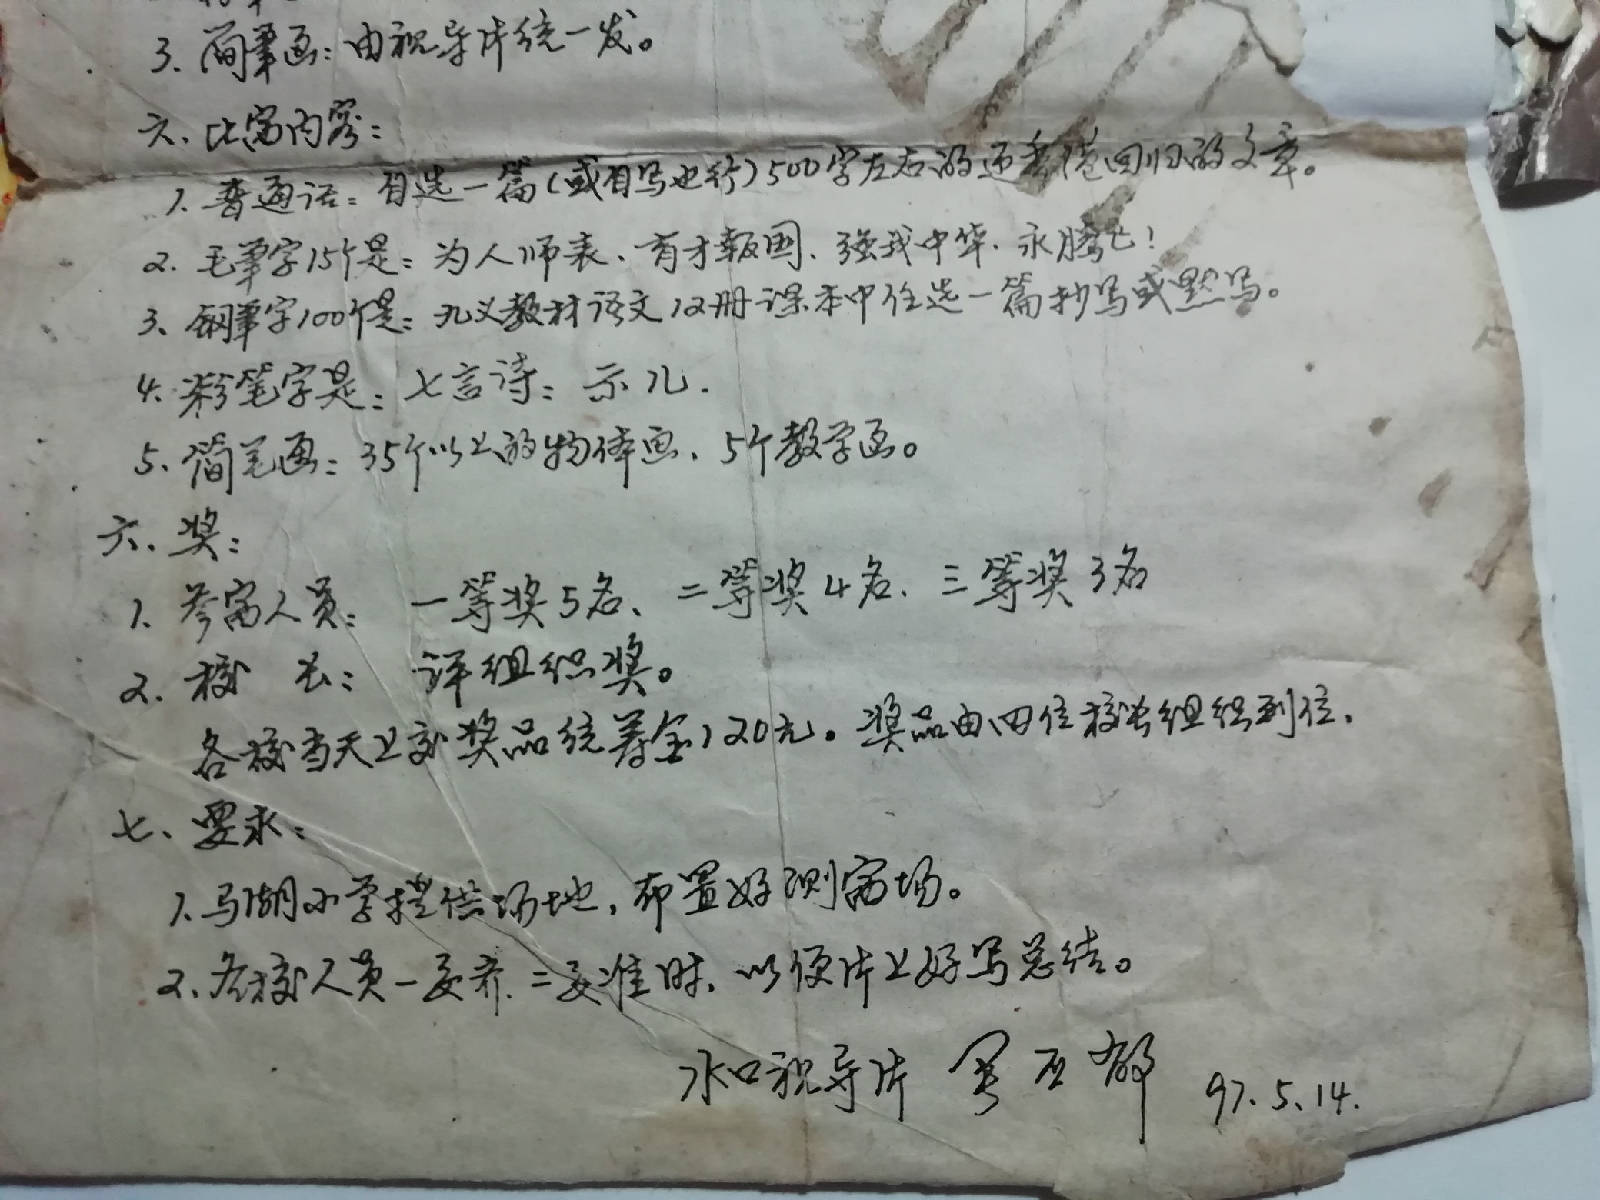 3、简笔画：由视导片统一发。
六、比赛内容：
1、普通话：自选一篇（或自写也行）500字左右的迎香港回归的文章。
2、毛笔字15个是：为人师表、育才報国、强我中华、永腾飞！
3、钢笔字100个是：九义教材语文12册课本中任选一篇抄写或默写。
4、粉笔字是：七言诗：示儿．
5、简笔画：35个以上的物体画、5个教学画。
六、奖：
1、参赛人员： 一等奖5名、二等奖4名、三等奖3名
2、校 长： 评组织奖。
各校当天上交奖品统筹金120元。奖品由四位校长组织到位．
七、要求：
1、马湖小学提供场地，布置好测赛场。
2、各校人员一要齐．二要准时，以便片上好写总结。
水口视导片 97.5.14.